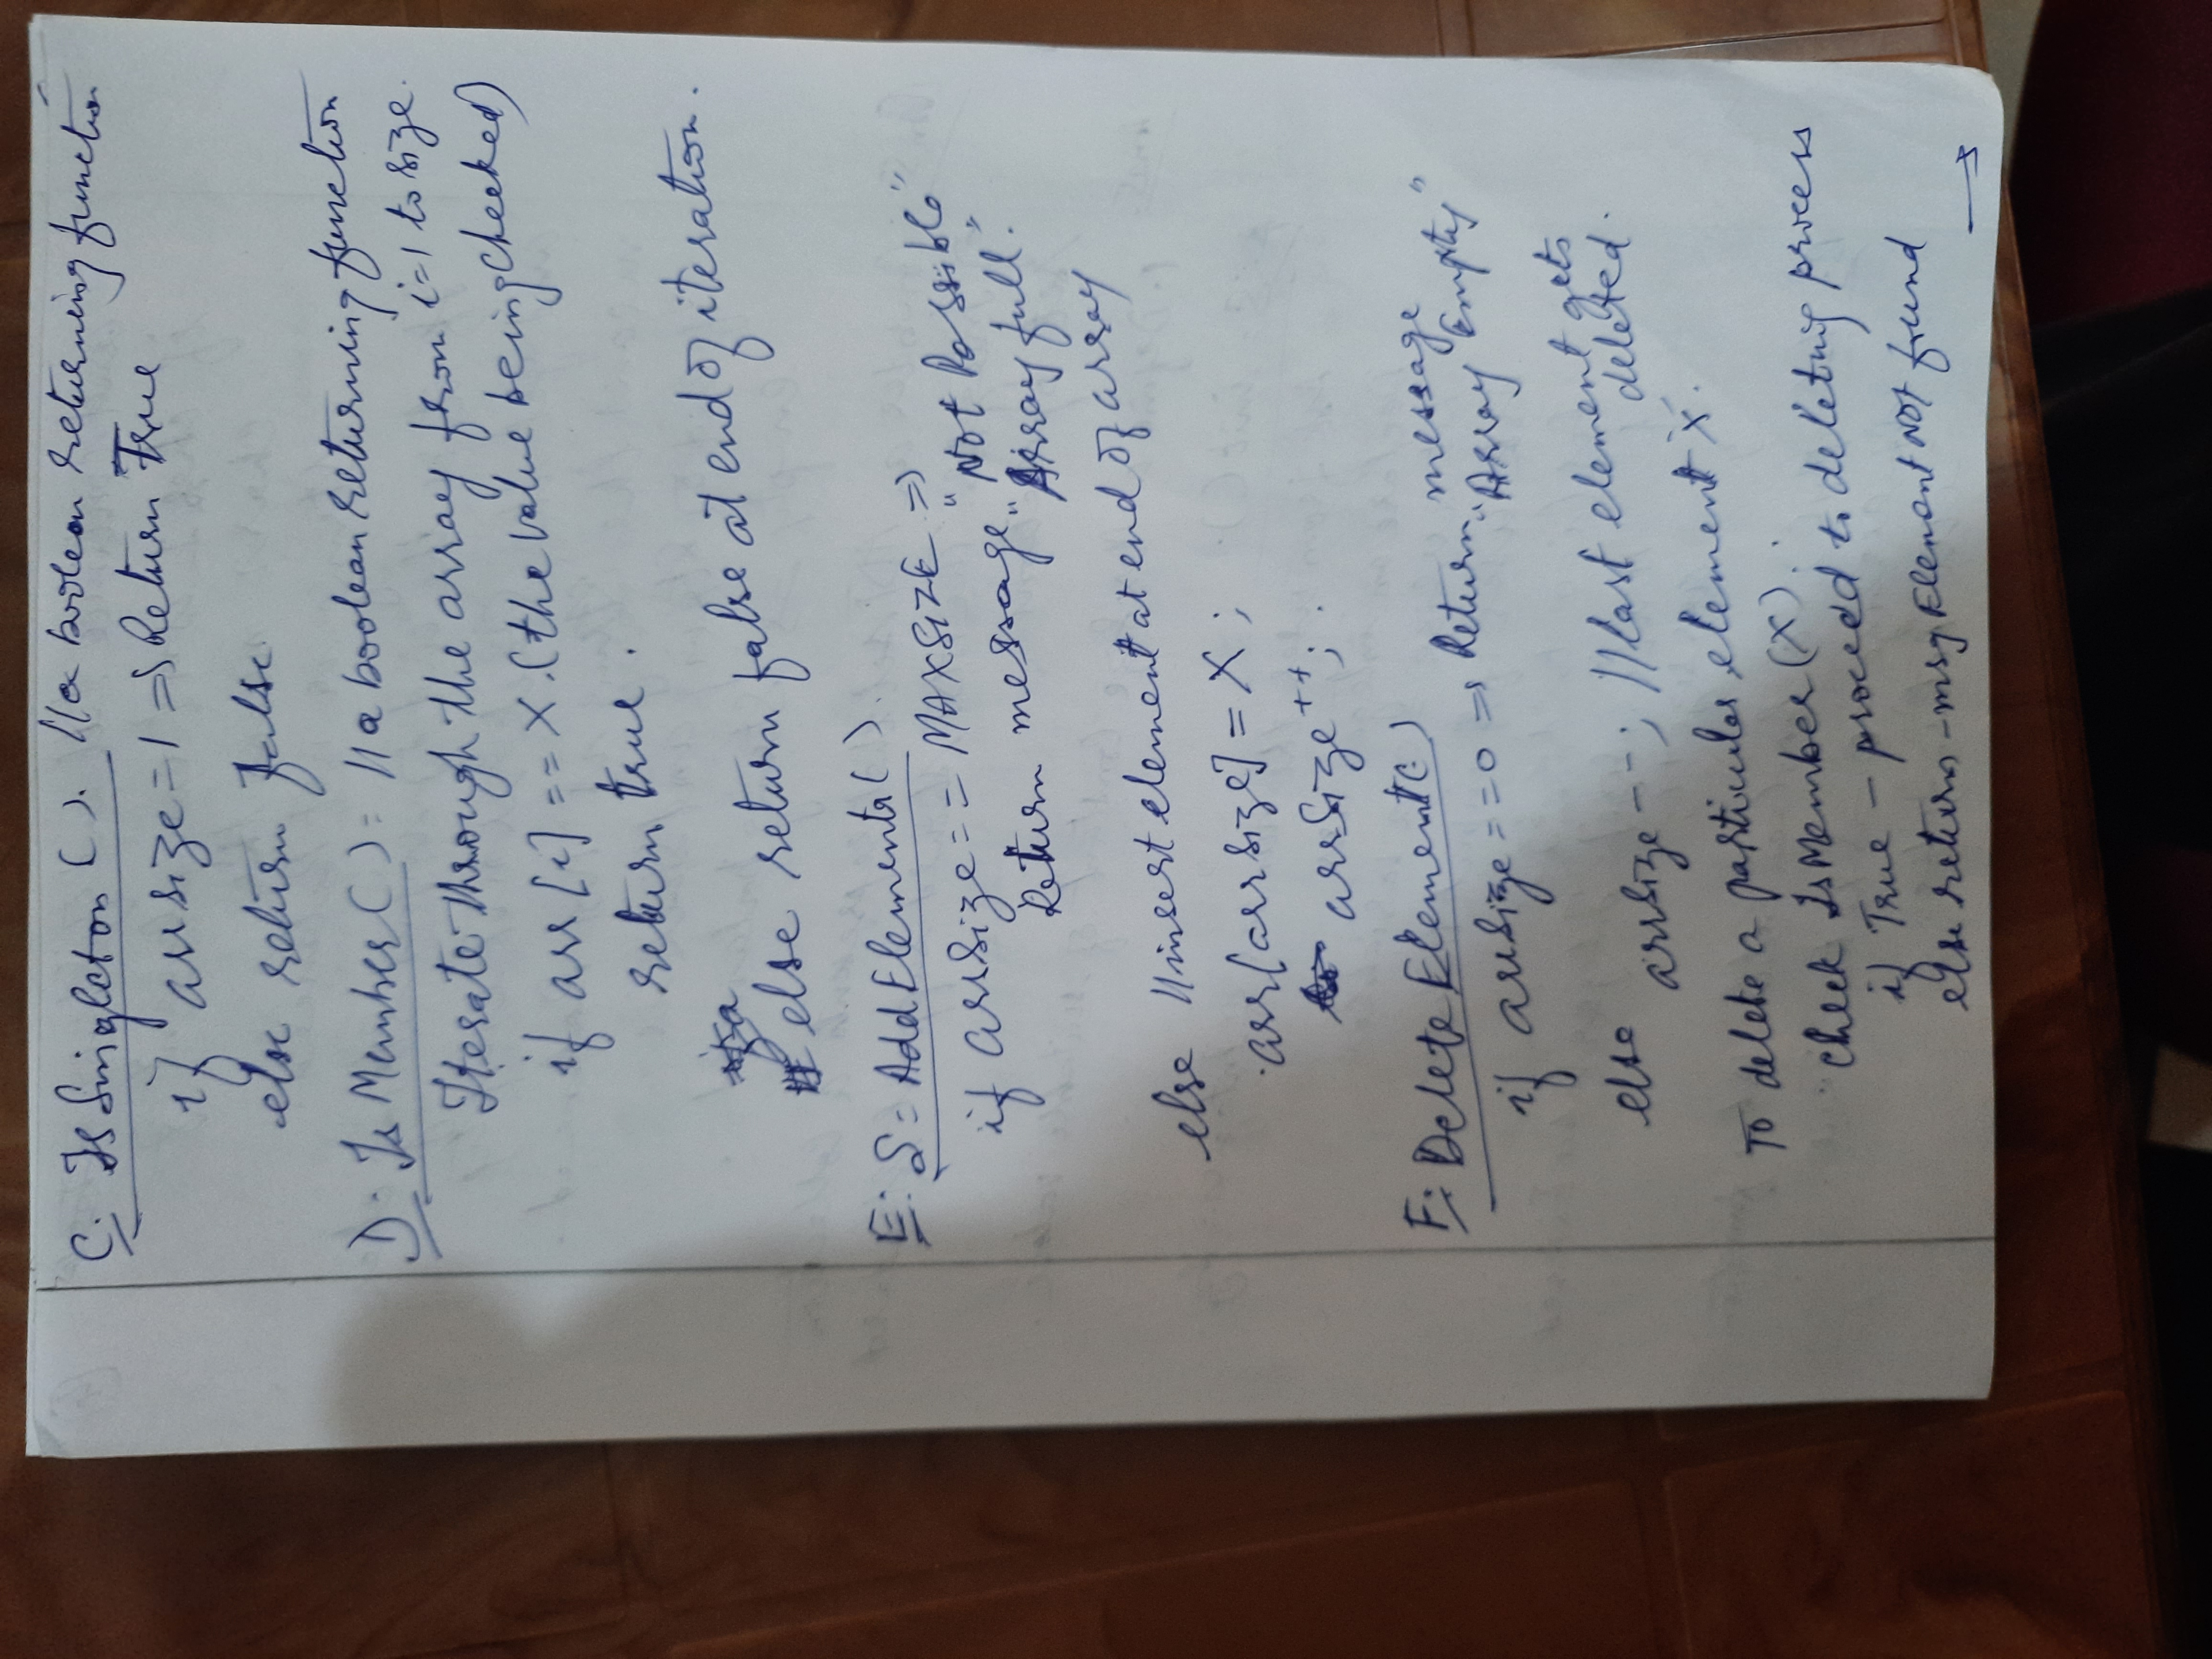 C. IsSingleton(). //a boolean returning function
if arrsize = 1 => Return True
else return false
D. IsMember() = //a boolean returning function
Iterate through the array from i=1 to size.
if arr[i] == X. (the value being checked)
return true.
else return false at end of iteration.
E. S = AddElements().
if arrSize == MAXSIZE => "Not Possible"
Return message "Array full."
else //insert element at end of array
arr[arrsize] = X;
arrSize++;
F. DeleteElement()
if arrSize == 0 => Return message "Array Empty"
else arrsize--; //last element gets deleted.
To delete a particular element 'X'.
check IsMember(X).
if True - proceed to deleting process
else return - msg Element Not found
→